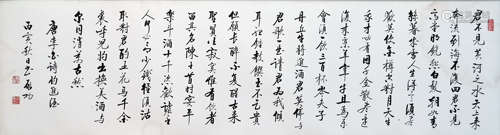 君不見黄河之水天上来
奔流到海不復回君不見
高堂明鏡悲白髮朝如青
絲暮成雪人生得意須盡
歡莫使金樽空對月天生
我材必有用千金散盡還
復来烹羊宰牛且為樂
會須一飲三百杯岑夫子
丹丘生將進酒君莫停与
君歌一曲請君為我傾
耳聽鐘鼓饌玉不足貴
但願長醉不復醒古来
聖賢皆寂寞惟有飲者
留其名陳王昔時宴平
樂斗酒十千恣歡謔主
人何為言少錢徑須沽
取對君酌五花馬千金
裘呼兒將出換美酒与
爾同消萬古愁
唐李白詩將進酒
丙寅秋日 启功